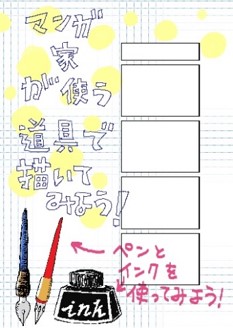 マンガ
家
が使う
道具で
描いて
みよう!
ペンと
インクを
使ってみよう!
ink